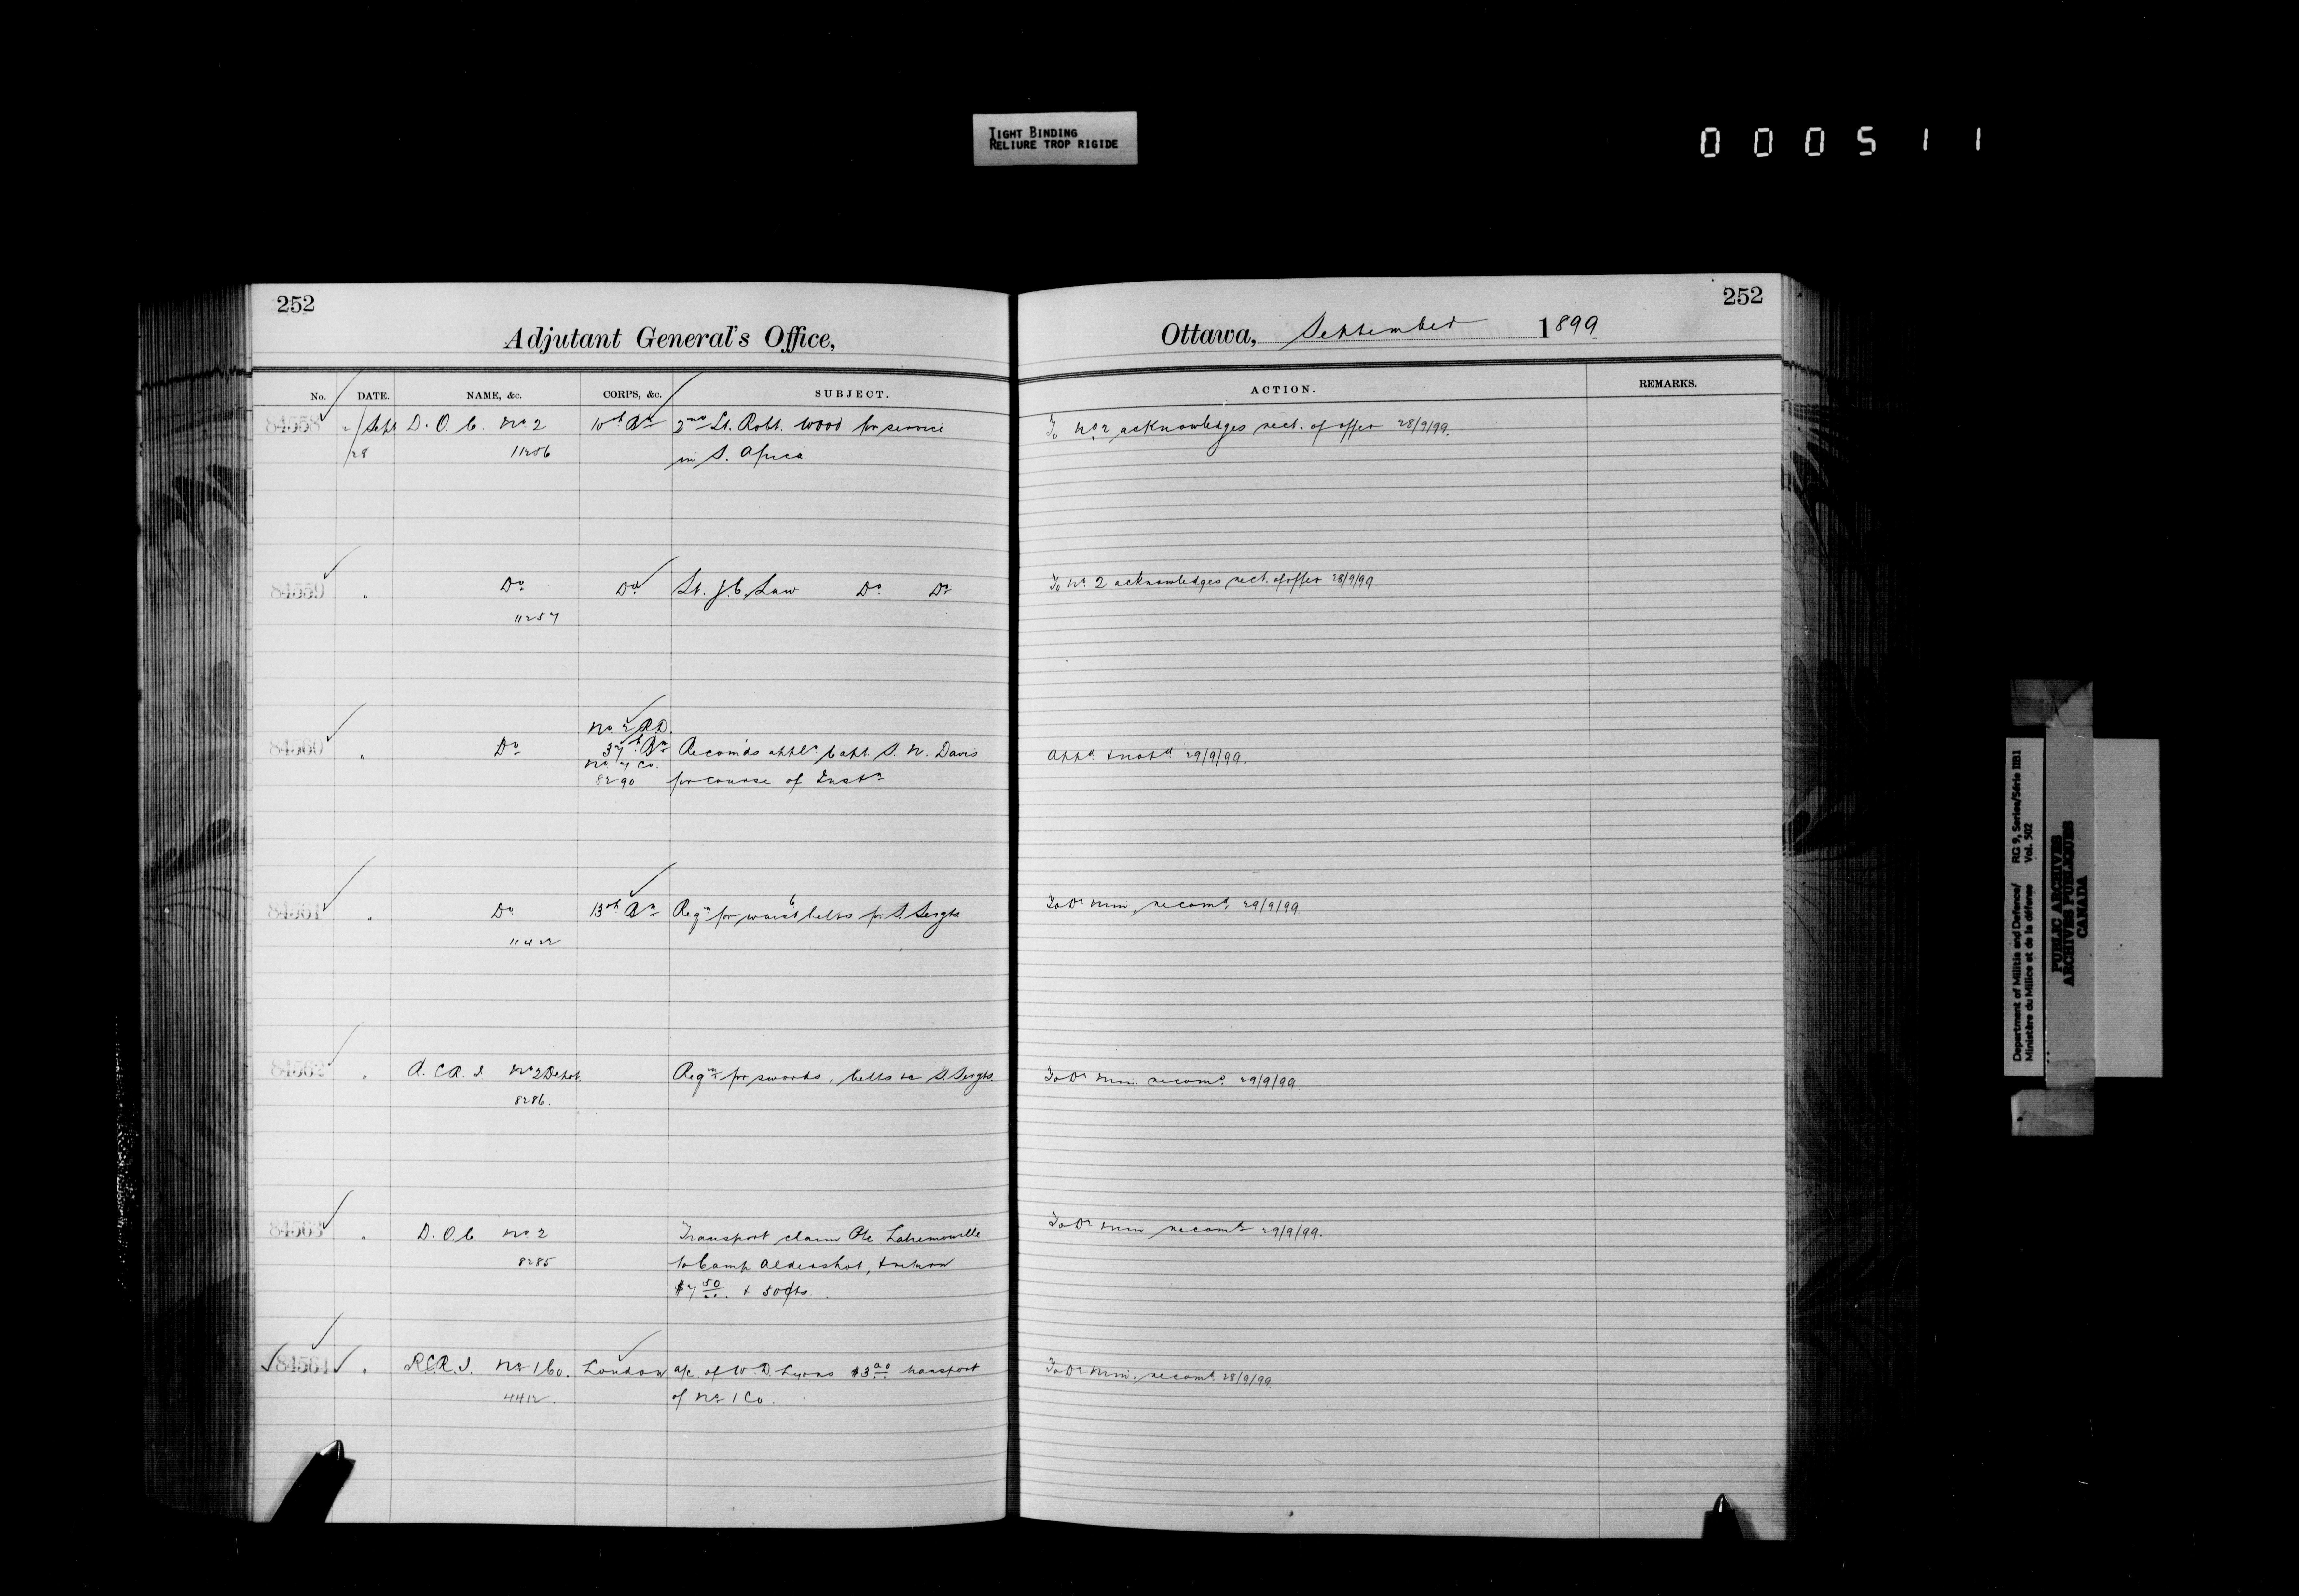 TIGHT BINDING
RELIURE TROP RIGIDE
000511
252
Adjutant General's Office,
No. DATE. NAME, &c. CORPS, &c. SUBJECT.
84558 Sept D.O.C. No 2 10th Bn 2nd Lt. Robt. Wood for service
28 11256 in S. Africa
84559 " Do Do Lt. J.C. Law Do Do
11257
No 2 R.D.
84560 " Do 37th Bn Recom'ds appln Capt. S. N. Davis
No 7 Co.
8290 for course of Instn
84561 " Do 13th Bn Reqn for 6 waist belts for S. Sergts
11422
84562 " R.C.R.I. No 2 Depot. Reqn for swords, belts &c S. Sergts.
8286.
84563 " D.O.C. No 2 Transport claim Pte.
8285 to Camp Aldershot, & return
$7 50 + 50 cts.
84564 " R.C.R.I. No 1 Co. London a/c of W. D. Lyons $3 00 transport
4412. of No 1 Co.
252
Ottawa, September 1899
ACTION. REMARKS.
To No 2 acknowledges rect. of offer 28/9/99.
To No 2 acknowledges rect. of offer 28/9/99.
Appd & notd 29/9/99.
To Dr Min, recomd 29/9/99.
To Dr Min, recomd 29/9/99.
To Dr Min recomd 29/9/99.
To Dr Min, recomd 28/9/99.
Department of Militia and Defence/ RG 9, Series/Série IIB1
Ministère du Milice et de la défense Vol. 502
PUBLIC ARCHIVES
ARCHIVES PUBLIQUES
CANADA